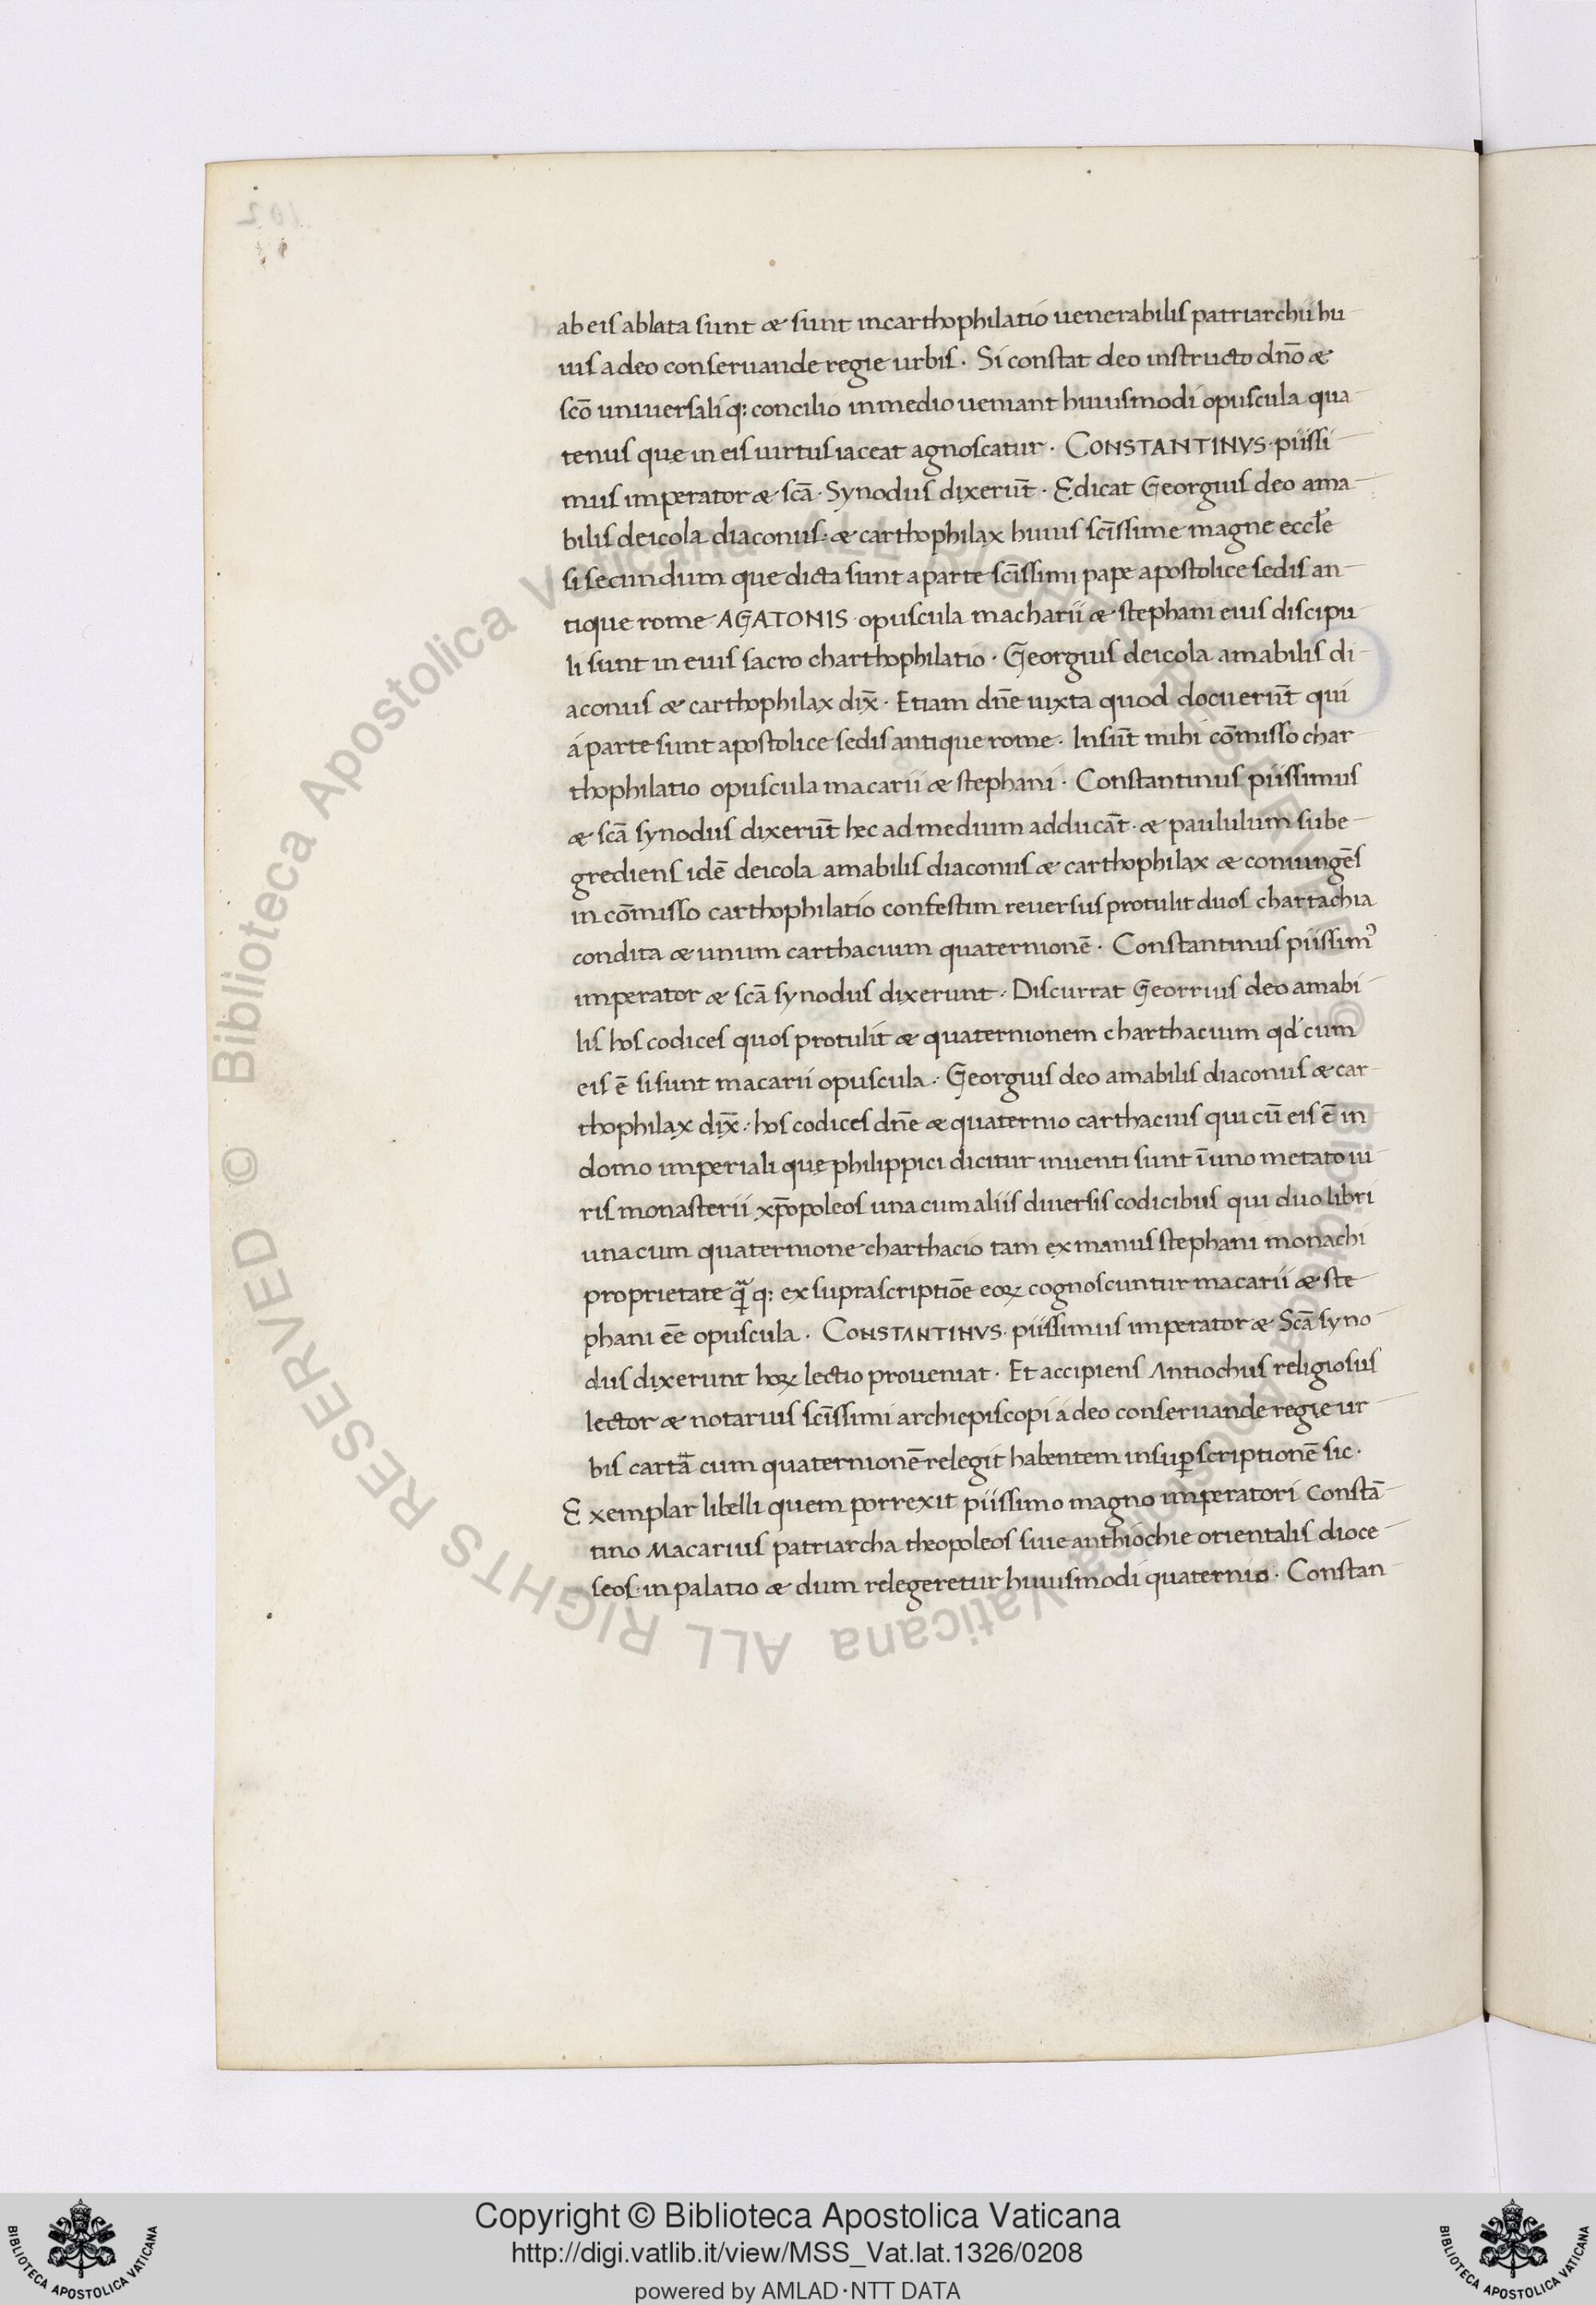 ab eis ablata sunt & sunt in carthophilatio uenerabilis patriarchii hu
ius a deo conseruande regie urbis. Si constat deo instructo dño &
scō uniuersaliq; concilio in medio ueniant huiusmodi opuscula qua
tenus que in eis uirtus iaceat agnoscatur. CONSTANTINVS. piissi
mus imperator & scā. Synodus dixerūt. Edicat Georgius deo ama
bilis deicola diaconus. & carthophilax huius scīssime magne eccłe
si secundum que dicta sunt a parte scīssimi pape apostolice sedis an
tique rome AGATONIS opuscula macharii & stephani eius discipu
li sunt in eius sacro charthophilatio. Georgius deicola amabilis di
aconus & carthophilax dix̄. Etiam dñe iuxta quod docuerūt qui
á parte sunt apostolice sedis antique rome. Insūt mihi cōmisso char
thophilatio opuscula macarii & stephani. Constantinus piissimus
& scā synodus dixerūt hec ad medium adducāt. & paululum sube
grediens idē deicola amabilis diaconus & carthophilax & coniungēs
in cōmisso carthophilatio confestim reuersus protulit duos chartachia
condita & unum carthacium quaternionē. Constantinus piissimꝰ
imperator & scā synodus dixerunt. Discurrat Georrius deo amabi
lis hos codices quos protulit & quaternionem charthacium qd' cum
eis ē si sunt macarii opuscula. Georgius deo amabilis diaconus & car
thophilax dix̄. hos codices dñe & quaternio carthacius qui cū eis ē in
domo imperiali que philippici dicitur inuenti sunt ī uno metato iu
ris monasterii xp̄opoleos una cum aliis diuersis codicibus qui duo libri
una cum quaternione charthacio tam ex manus stephani monachi
proprietate q̄q; ex suprascriptiōe eoꝝ cognoscuntur macarii & ste
phani eē opuscula. CONSTANTINVS. piissimus imperator & Scā syno
dus dixerunt hoꝝ lectio proueniat. Et accipiens Antiochus religiosus
lector & notarius scīssimi archiepiscopi á deo conseruande regie ur
bis cartā cum quaternionē relegit habentem insuꝑscriptionē sic.
Exemplar libelli quem porrexit piissimo magno imperatori constā
tino Macarius patriarcha theopoleos siue anthiochie orientalis dioce
seos. in palatio & dum relegeretur huiusmodi quaternio. Constan
Copyright © Biblioteca Apostolica Vaticana
http://digi.vatlib.it/view/MSS_Vat.lat.1326/0208
powered by AMLAD·NTT DATA
BIBLIOTECA APOSTOLICA VATICANA
BIBLIOTECA APOSTOLICA VATICANA
© Biblioteca Apostolica Vaticana ALL RIGHTS RESERVED © Biblioteca Apostolica Vaticana ALL RIGHTS RESERVED